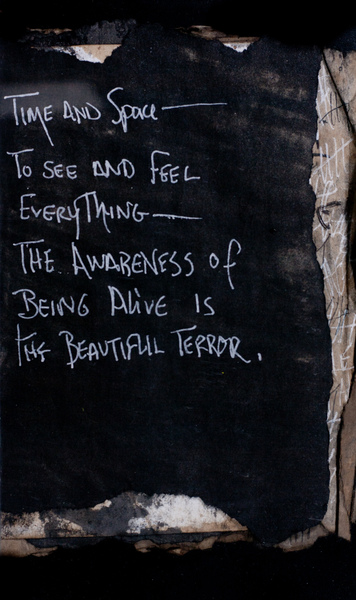 TIME AND Space —
TO SEE AND FEEL
EVERYTHING —
THE AWARENESS of
BEING ALIVE IS
THE BEAUTIFUL TERROR.